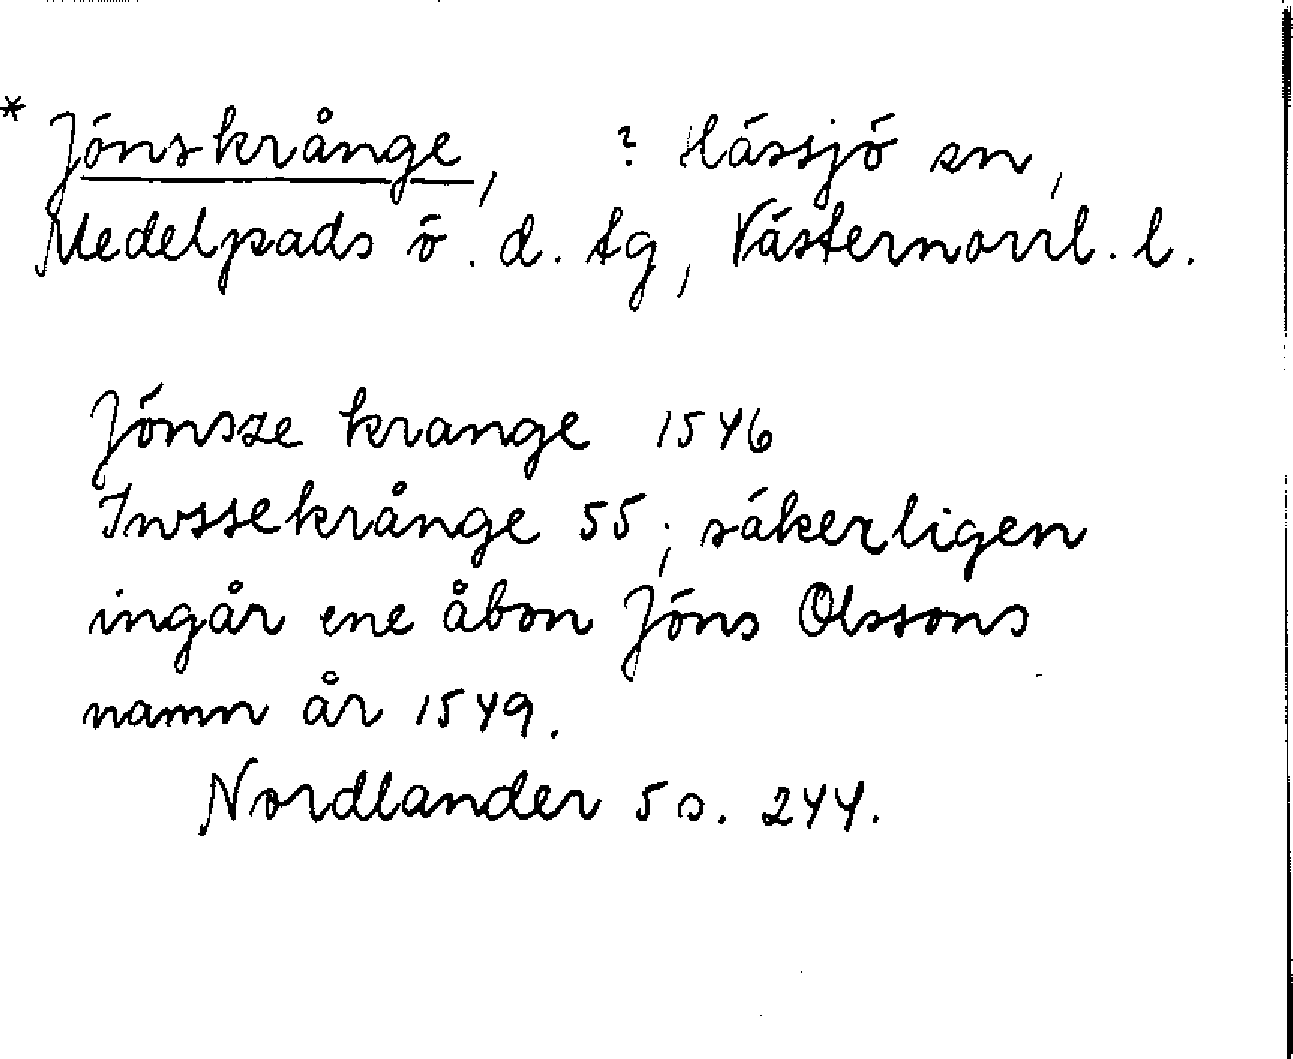 * Jönskrånge, ? Hässjö sn,
Medelpads ö. d. tg, Västernorrl. l.
Jönsze krange 1546
Inssekrånge 55; säkerligen
ingår ene åbon Jöns Olssons
namn år 1549.
Nordlander 5 s. 244.